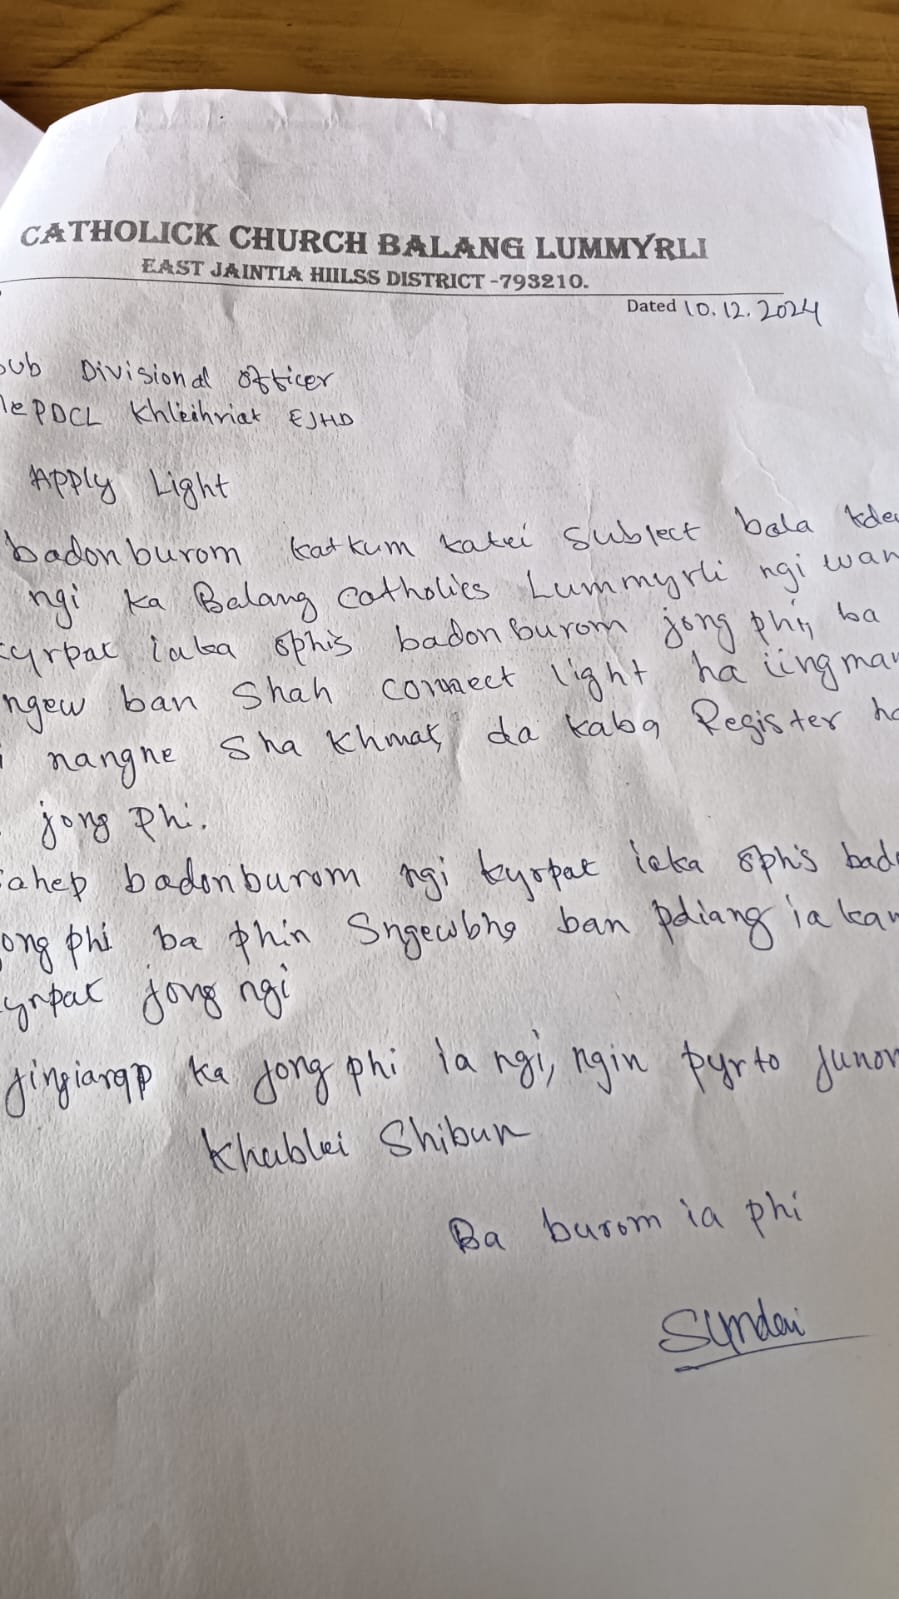 CATHOLICK CHURCH BALANG LUMMYRLI
EAST JAINTIA HIILSS DISTRICT -793210.
Dated 10.12.2024
Sub Divisional Officer
MePDCL Khleihriat EJHD
Apply Light
badonburom katkum katei Subject bala kde
ngi ka Balang Catholics Lummyrli ngi wan
kyrpat iaka ophis badonburom jong phi, ba
ngew ban shah connect light ha iing man
nangne sha khmat, da kaba Register ha
jong phi.
ahep badonburom ngi kyrpat iaka ophis bad
jong phi ba phin Sngewbha ban pdiang ia kan
kyrpat jong ngi
jingiarap ka jong phi ia ngi, ngin pyrto junom
Khublei Shibun
Ba burom ia phi